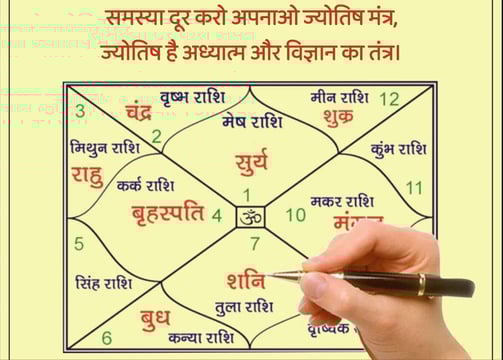 समस्या दूर करो अपनाओ ज्योतिष मंत्र,
ज्योतिष है अध्यात्म और विज्ञान का तंत्र।
वृष्भ राशि
मीन राशि 12
3 चंद्र
मेष राशि
शुक्र
2
मिथुन राशि
कुंभ राशि
सुर्य
राहु
कर्क राशि
11
1
मकर राशि
बृहस्पति 4 ॐ 10 मंगल
7
5
शनि
सिंह राशि
तुला राशि
बुध
6 कन्या राशि
राशि